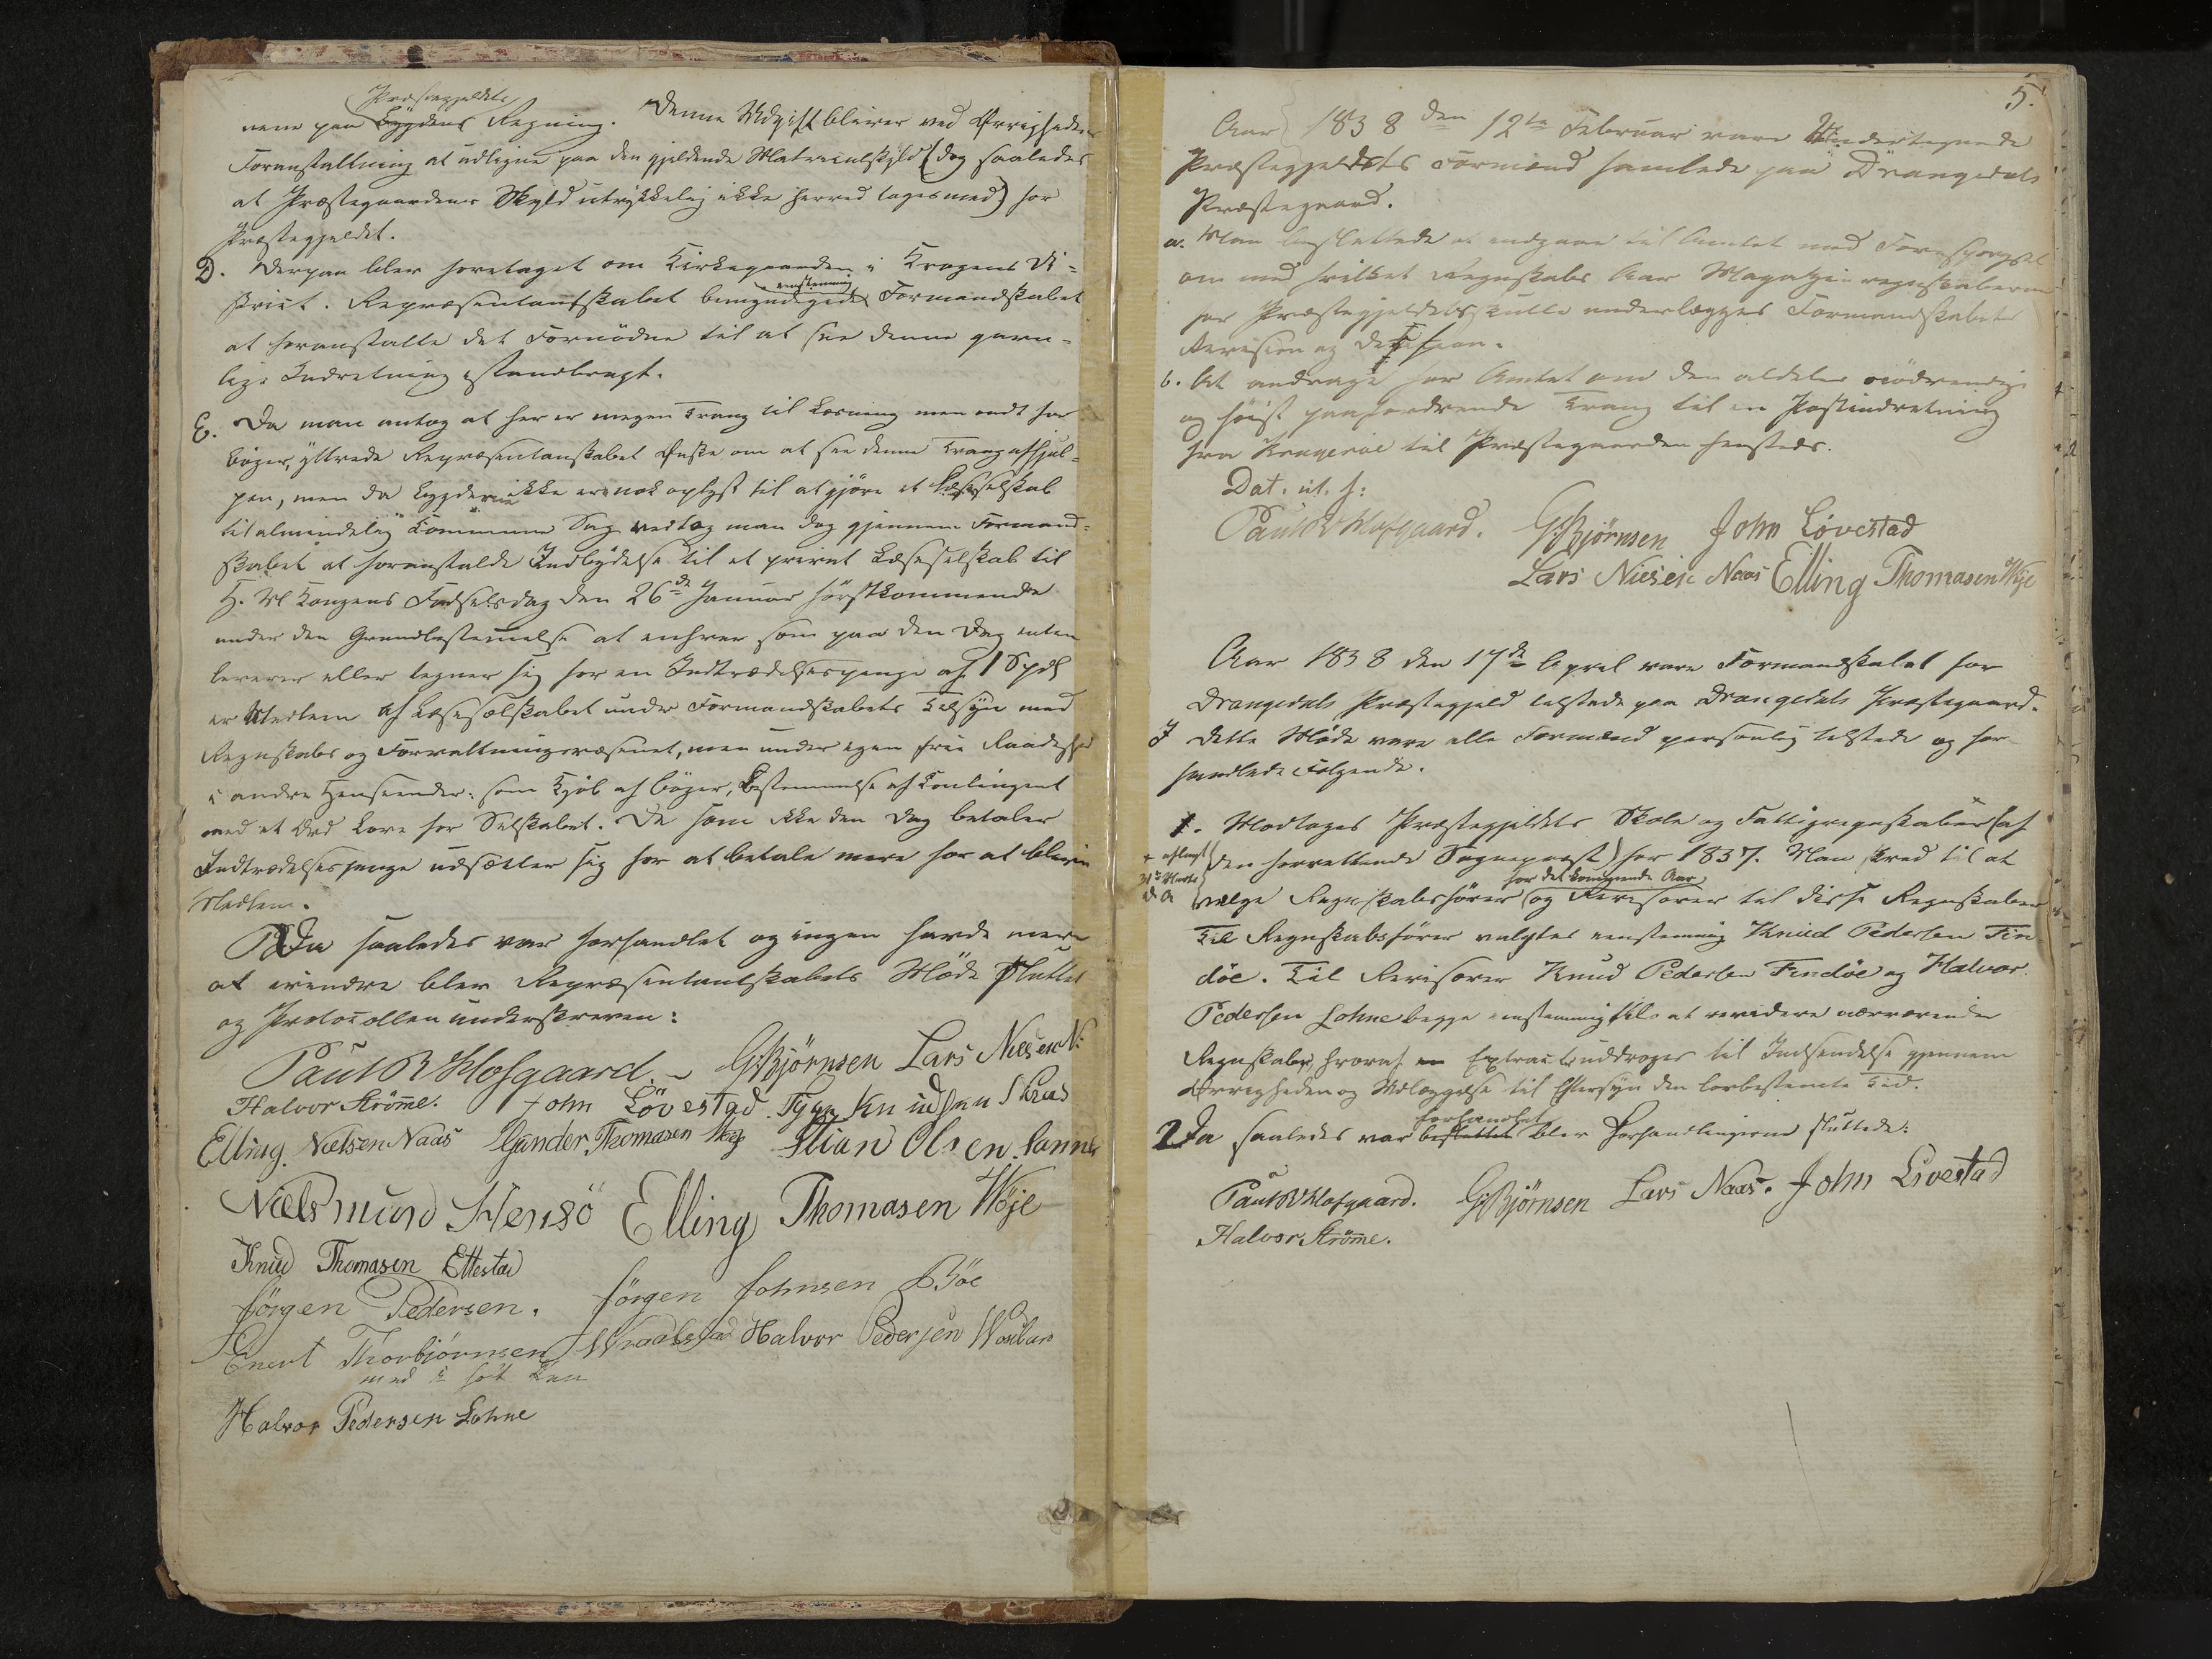 Præstegjeldets
nene paa Bygdens Regning. Denne Udgift bliver ved Øvrighedens
Foranstaltning at udligne paa den gjeldende Matriculskyld (dog saaledes
at Præstegaardenes Skyld udtrykkelig ikke herved tages med) for
Præstegjeldet.
D. Derpaa blev foretaget om Kirkegaarden i Kragens Di-
eenstemmig
strict. Repræsentantskabet bemyndigede Formandskabet
at foranstalte det Fornødne til at faae denne gavn-
lige Indretning istandbragt.
E. Da man antog at her er megen Trang til Læsning men ondt for
Bøger, yttrede Repræsentanskabet Ønske om at see denne Trang afhjul-
pen, men da Bygderne ikke ere nok oplyst til at gjøre et Læseselskab
til almindelig Commune Sag vedtog man dog gjennem Formand-
skabet at foranstalde Indbydelse til et privat Læseselskab til
H. M Kongens Fødselsdag den 26de Januar førstkommende
under den Grundbestemmelse at enhver som paa den Dag enten
leverer eller tegner sig for en Indtrædelsespenge af 1 Spd
er Medlem af Læseselskabet under Formandskabets Tilsyn med
Regnskabs og Forvaltningsvæsenet, men under egen frie Raadighed
i andre Henseender: som Kjøb af Bøger, Bestemmelse af Contingent
med et Ord Love for Selskabet. De som ikke den Dag betaler
Indtrædelsespenge udsætter sig for at betale mere for at blive
Medlem.
Da saaledes var forhandlet og ingen havde mere
at erindre blev Repræsentantskabets Møde sluttet
og Protocollen underskreven:
Paul B Hofgaard. GBjørnsen Lars Nielsen N:
Halvor Strømme. John Lövestad Knudsen
Elling Nielsen Naas Gunder Thomasen Stian Olsen Sannes
Niels Henseö Elling Thomasen Wöje
Knud Thomasen Ettestad
Jörgen Pedersen. Jörgen Johnsen Böe
Enert Thorbjörnsen Wraalstad Halvor Pedersen
med Pen
Halvor Pedersen Lohne
5.
Aar 1838 den 12te Februar vare Undertegnede
Præstegjeldets Formænd samlede paa Drangedals
Præstegaard.
a. Man besluttede at indgaae til Amtet med Forespørgsel
om med hvilket Regnskabs Aar Magazinregnskaberne
for Præstegjeldet skulle underlægges Formandskabets
Revision og Decision.
b. At andrage for Amtet om den aldeles nödvendige
og höist paatrængende Trang til en Postindretning
fra Krageröe til Præstegaarden hersteds.
Dat. ut. s:
Paul B Hofgaard. GBjörnsen John Lövestad
Lars Nielsen Naas Elling Thomasen Wöje
Aar 1838 den 17de April vare Formandskabet for
Drangedals Præstegjeld tilstede paa Drangedals Præstegaard.
I dette Möde vare alle Formænd personlig tilstede og for-
handlede Fölgende.
1. Modtages Præstegjeldets Skole og Fattigregnskaber (af
+ aflagt
den forrettende Sognepræst) for 1837. Man skred til at
31te Marts
d. A
for det kommende Aar
vælge Regnskabsförer og Revisorer til disse Regnskaber
Til Regnskabsförer valgtes eenstemmig Knud Pedersen Fin-
döe. Til Revisorer Knud Pedersen Findöe og Halvor
Pedersen Lohne begge eenstemmig til at revidere nærværende
Regnskaber, hvoraf en Extract uddrages til Indsendelse gjennem
Øvrigheden og Udlæggelse til Eftersyn den lovbestemte Tid.
forhandlet
2 Da saaledes var besluttet blev Forhandlingerne sluttede.
Paul B Hofgaard. GBjörnsen Lars Naas. John Lövestad
Halvor Strömme.